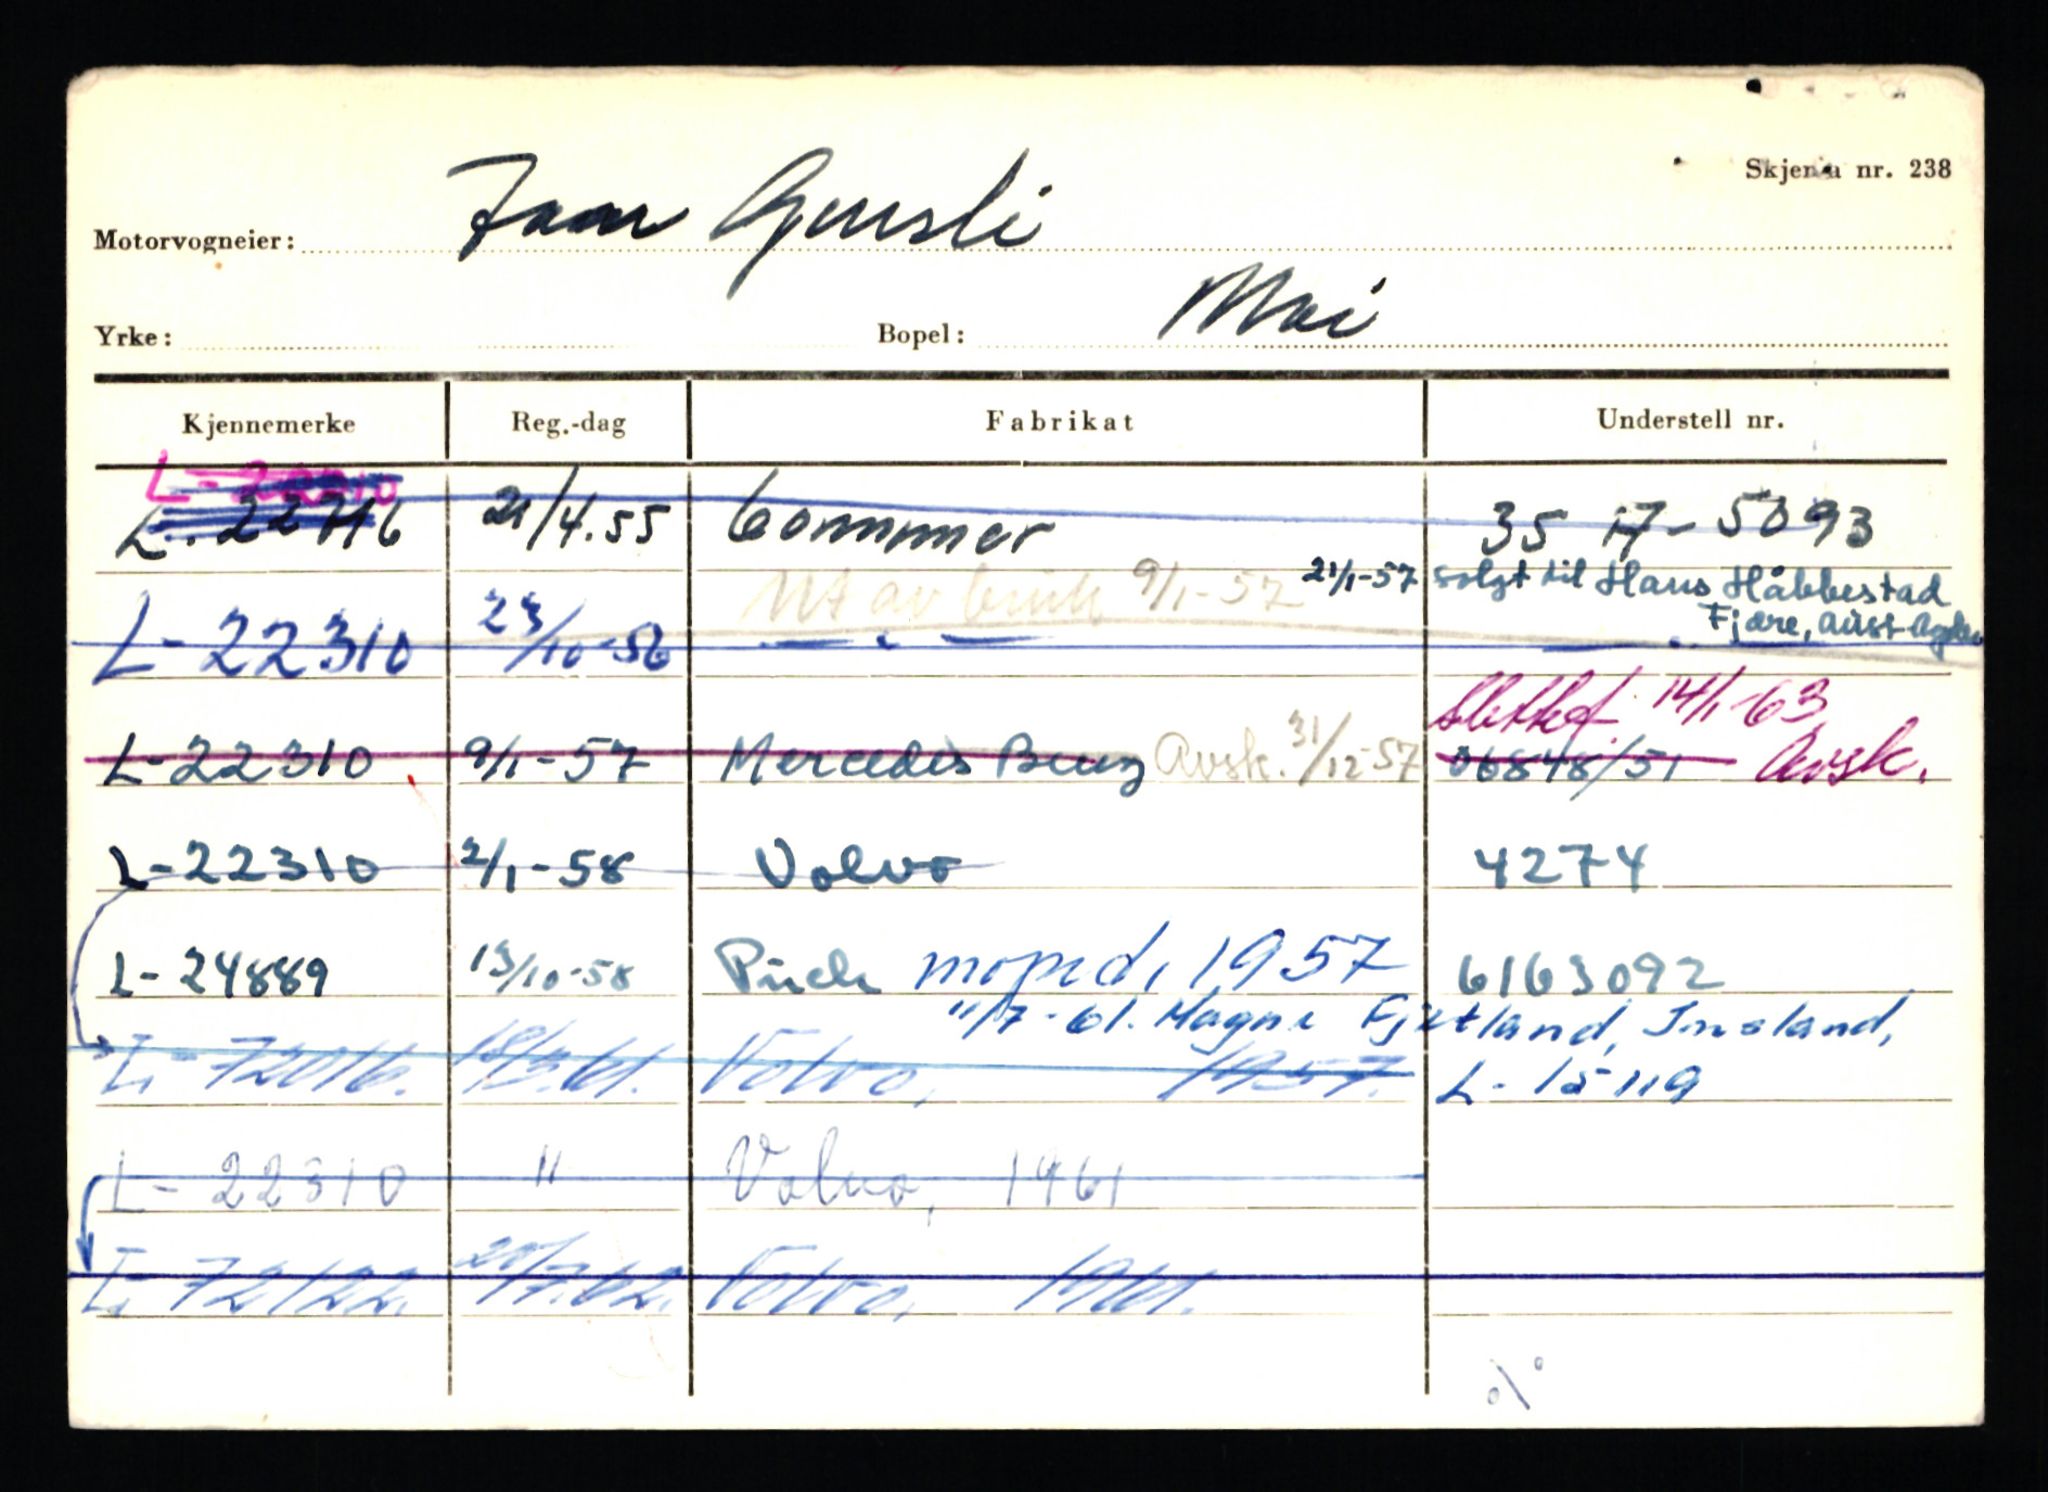 Skjema nr. 238
Motorvogneier: Ivar Gursli
Yrke: Bopel: Moi
Kjennemerke Reg.-dag Fabrikat Understell nr.
L-22310
L. 22716 21/4.55 Commer 35 17-5093
Ut av bruk 9/1-57 21/1-57 solgt til Hans Håbbestad
Fjære, Aust-Agder
L-22310 23/10-56 — " —
slettet 14/1-63
L-22310 9/1-57 Mercedes Benz Avsk. 31/12-57 06848/51 Avsk.
L-22310 2/1-58 Volvo 4274
L-24889 13/10-58 Puch moped, 1957 6163092
11/7-61. Magne Fjetland, Imsland,
L-72016. 18/3.61. Volvo, 1957. L-15119
L-22310 " Volvo, 1961
L-72122. 7.62. Volvo, 1961.